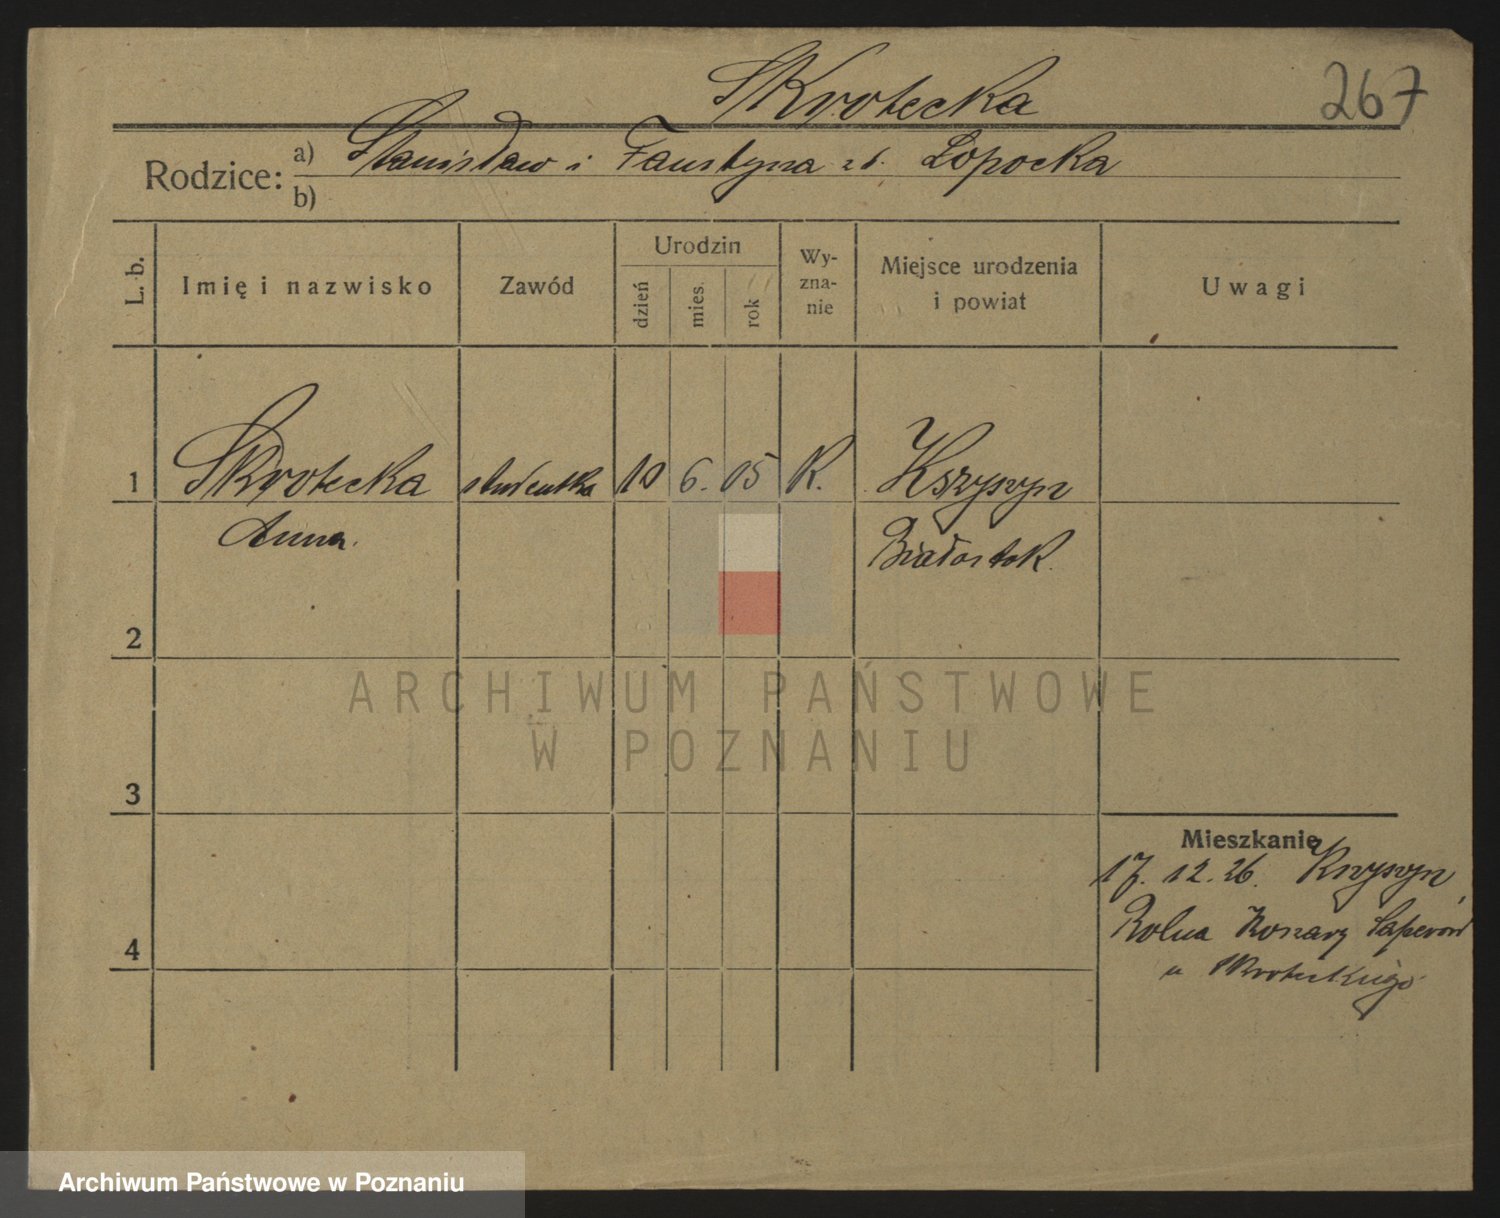 Skrotecka
267
Rodzice: a) Stanisław i Faustyna zd. Łopocka
b)
L. b.
Imię i nazwisko
Zawód
Urodzin
dzień
mies.
rok
Wy-
zna-
nie
Miejsce urodzenia
i powiat
Uwagi
1
Skrotecka studentka 10 6. 05 R.
Anna.
Białostok.
2
3
4
Mieszkanie
17. 12. 26.
Rolna
u Skroteckiego
ARCHIWUM PAŃSTWOWE
W POZNANIU
Archiwum Państwowe w Poznaniu